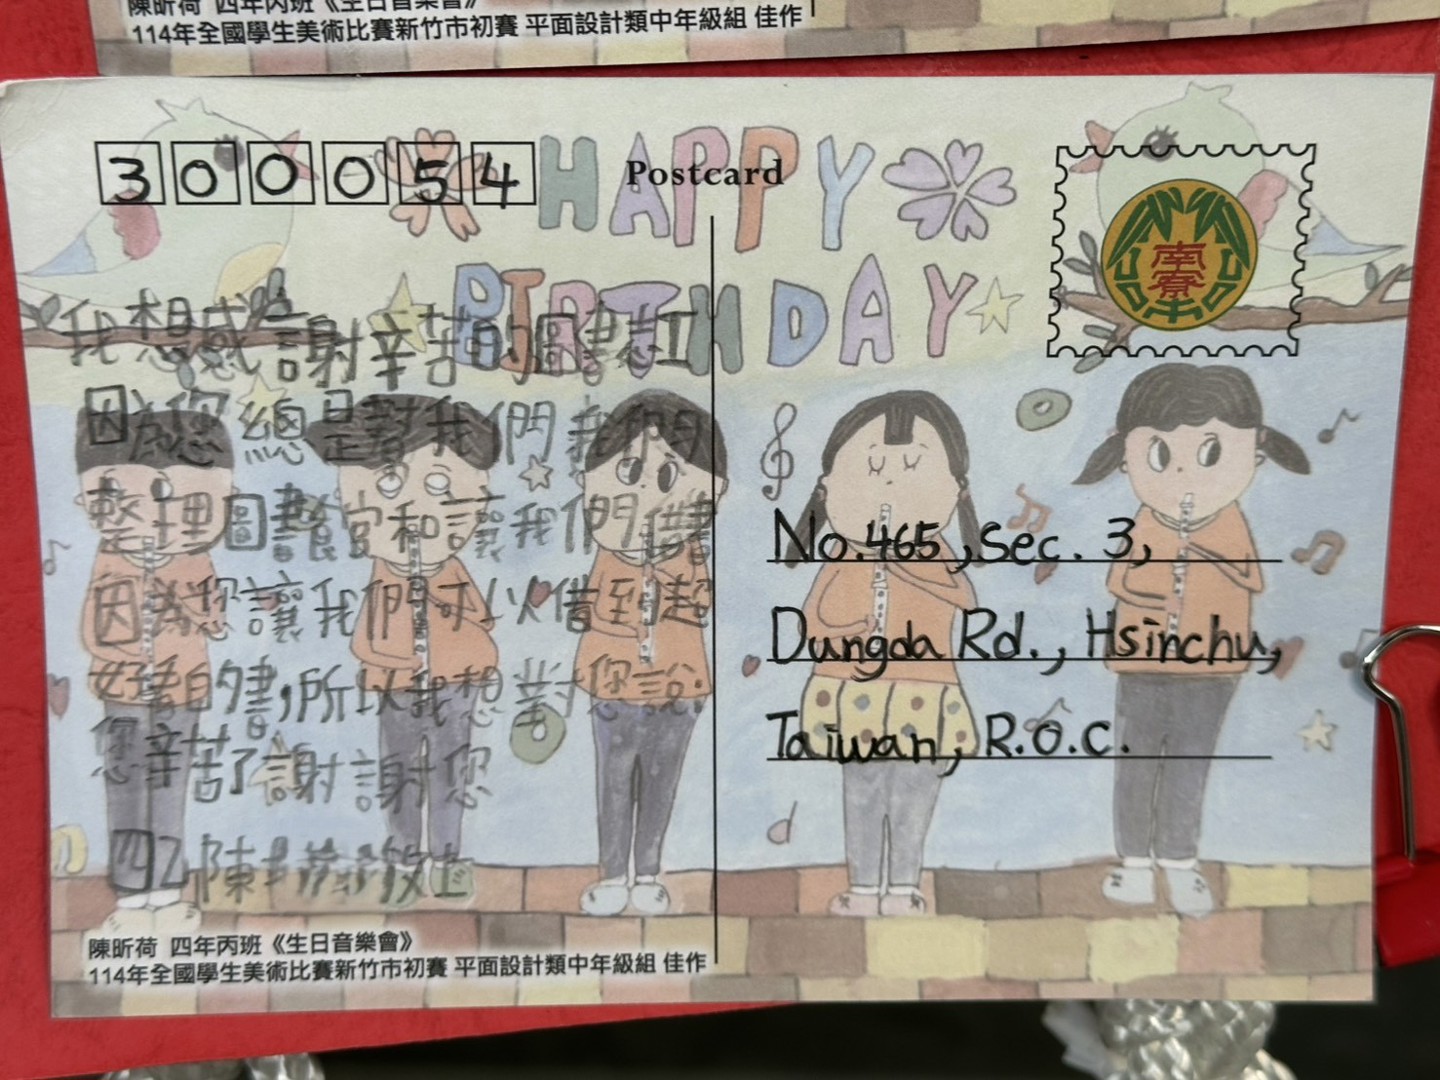 陳昕荷 四年丙班《生日音樂會》
114年全國學生美術比賽新竹市初賽 平面設計類中年級組 佳作
300054
Postcard
HAPPY
BIRTHDAY
南寮
我想感謝辛苦的圖書志工
因為您總是替我們我們
整理圖書館和讓我們借書
因為您讓我們可以借到超
好看的書,所以我想對您說:
您辛苦了謝謝您
四乙 陳
No.465, Sec. 3,
Dungda Rd., Hsinchu,
Taiwan, R.O.C.
陳昕荷 四年丙班《生日音樂會》
114年全國學生美術比賽新竹市初賽 平面設計類中年級組 佳作